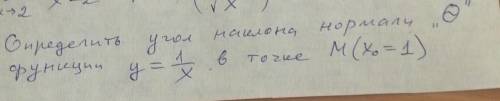 Определить угол наклона нормали „Θ"
функции y = 1/x в точке M(x₀=1)